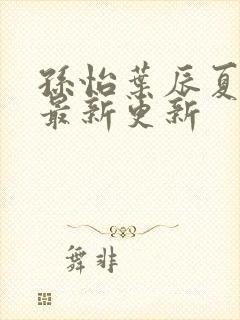 孫怡葉辰夏
最新更新
舞非